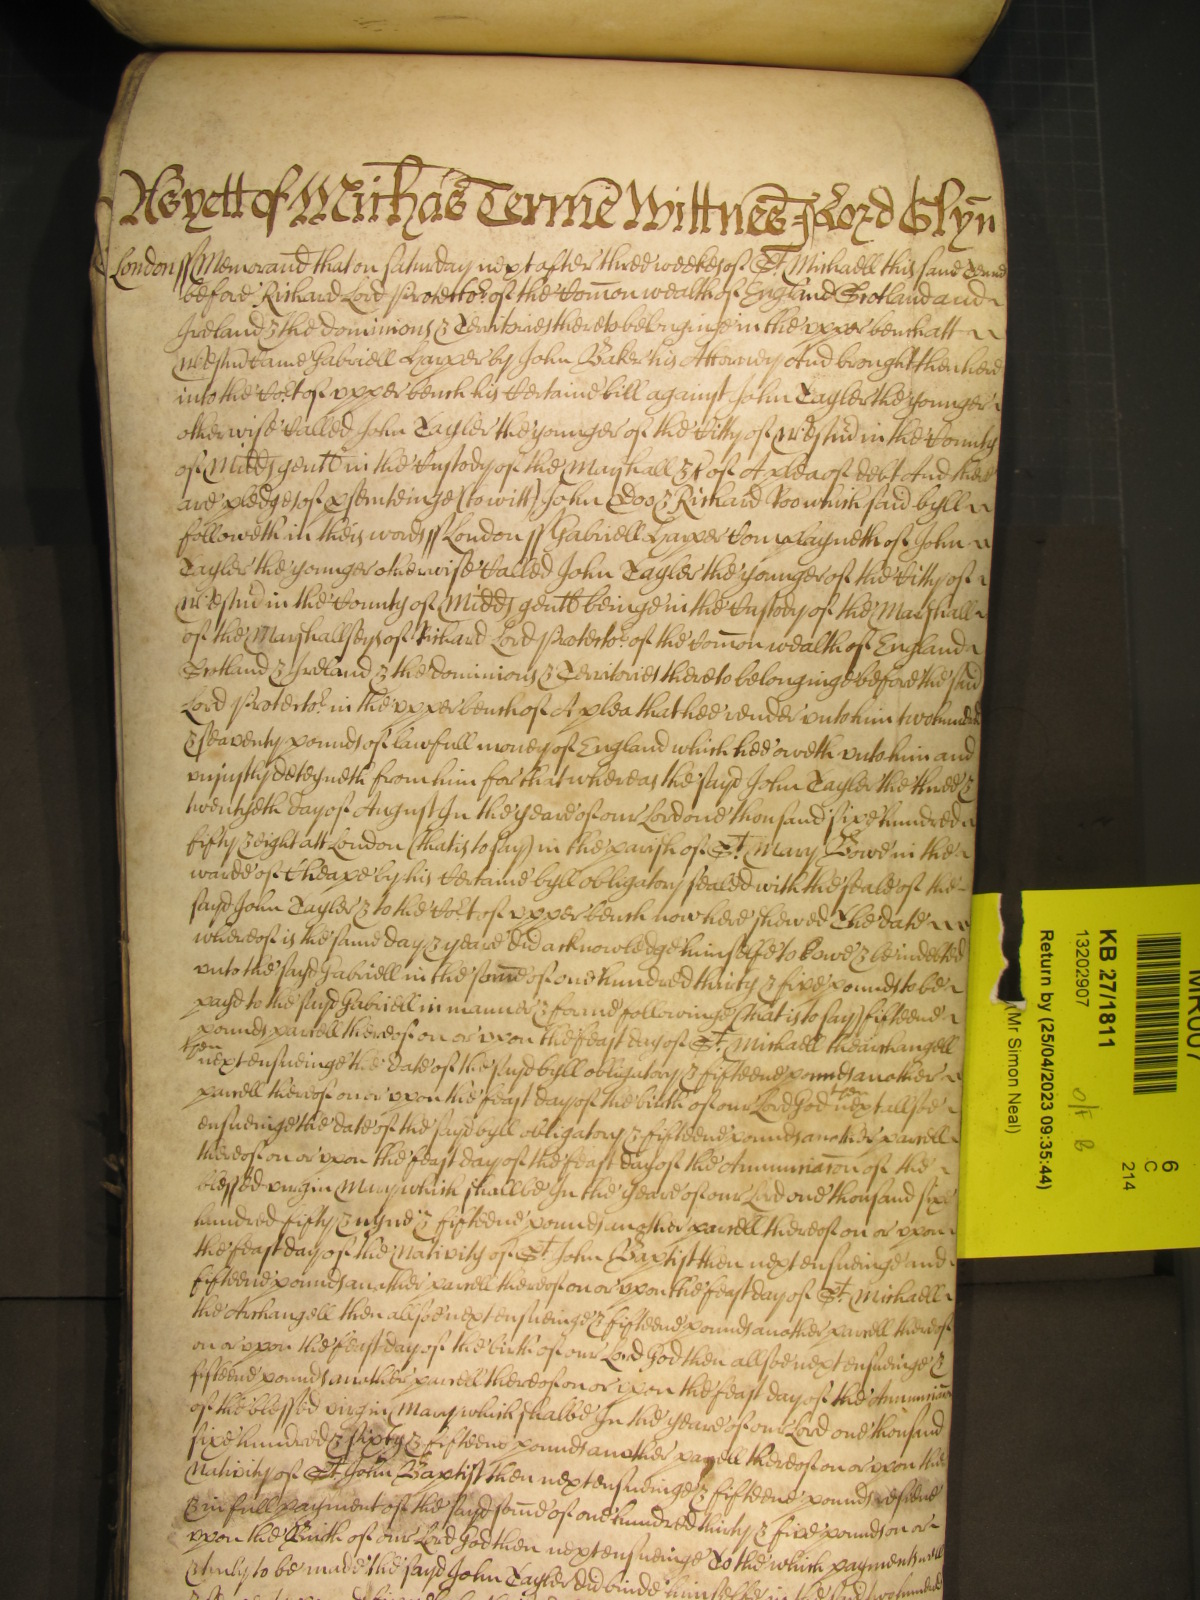 As yett of Michās Terme Wittnes Lord Glyn
London ss Memorand that on Saturday next after three weekes of St Michaell this same Terme
before Richard Lord Protector of the Comon wealth of England Scotland and
Ireland & the dominions & Territories thereto belonginge in the upper bench att
Westm̄ came Gabriell Harper by John Baker his Attorney And brought then here
into the Cort of upper bench his certaine bill against John Tayler the younger
otherwise called John Tayler the younger of the Citty of Westm̄ in the County
of Midds gent in the Custody of the Marshall &c of A plea of debt And there
are pledges of prsenteinge (to witt) John Doo & Richard Roo which said byll
followeth in theis words ss London ss Gabriell Harper Complayneth of John
Tayler the younger otherwise called John Tayler the younger of the Citty of
Westm̄ in the County of Midds gent beinge in the Custody of the Marshall
of the Marshallseys of Richard Lord Protector of the Comon wealth of England
Scotland & Ireland & the dominions & Territories thereto belonginge before the said
Lord Protector in the upper bench of A plea that hee render unto him two hundred
& seaventy pounds of lawfull money of England which hee oweth unto him and
unjustly deteyneth from him for that whereas the sayd John Tayler the three &
twentyeth day of August In the yeare of our Lord one thousand six hundred
fifty & eight att London (that is to say) in the parish of St Mary Bowe in the
warde of Cheape by his certaine byll obligatory sealed with the seale of the
sayd John Tayler & to the Cort of upper bench now here shewed The date
whereof is the same day & yeare did acknowledge himselfe to owe & be indebted
unto the sayd Gabriell in the some of one hundred thirty & five pounds to be
payd to the sayd Gabriell in manner & forme followinge (that is to say) fifteene
pounds parcell thereof on or upon the feast day of St Michaell the archangell
then
next ensueinge the date of the sayd byll obligatory & fifteene pounds another
parcell thereof on or upon the feast day of the birth of our Lord God then next allsoe
ensueinge the date of the sayd byll obligatory & fifteene pounds another parcell
thereof on or upon the feast day of the feast day of the Annunciacon of the
blessed virgin Mary which shall be In the yeare of our Lord one thousand sixe
hundred fifty & nyne & fifteene pounds another parcell thereof on or upon
the feast day of the Nativity of St John Baptist then next ensueinge and
fifteene pounds another parcell thereof on or upon the feast day of St Michaell
the Archangell then allsoe next ensueinge & fifteene pounds another parcell thereof
on or upon the feast day of the birth of our Lord God then allsoe next ensueinge &
fifteene pounds another parcell thereof on or upon the feast day of the Annunciacon
of the blessed virgin Mary which shalbe In the yeare of our Lord one thousand
sixe hundred & sixty & fifteene pounds another parcell thereof on or upon the
Nativity of St John Baptist then next ensueinge & fifteene pounds residue
& in full payment of the sayd some of one hundred thirty & five pounds on or
upon the Birth of our Lord God then next ensueinge To the which payments well
& truly to be made the sayd John Tayler did binde himselfe in the said two hundred
MR007
KB 27/1811
13202907
Return by (25/04/2023 09:35:44)
(Mr Simon Neal)
o/f B
6
C
214